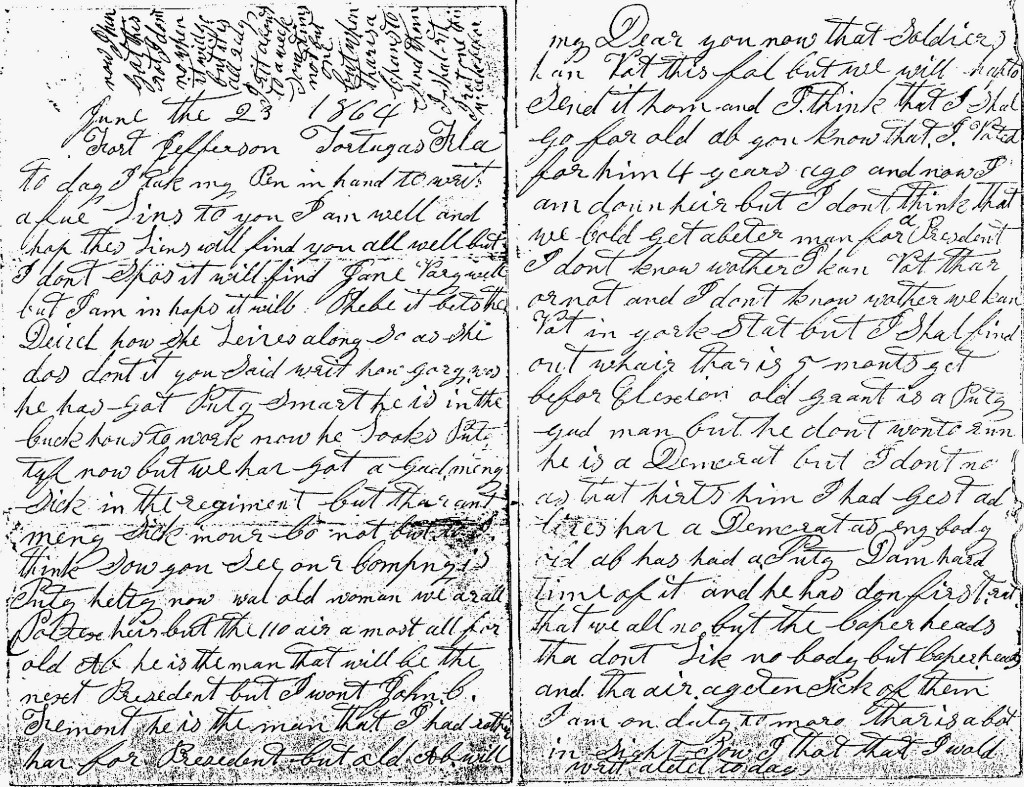 June the 23 1864
Fort Jefferson Tortugas Fla
to day I tak my Pen in hand to writ
a fue Lins to you I am well and
hop thes Liens will find you all well but
I dont Spos it will find Jane Vary well
but I am in hops it will Phebe it bets the
how She Leives along So as She
dos dont it you Said writ how gorg was
he has got Puty Smart he is in the
Cuck hous to work now he Looks Puty
now but we har got a gud meny
Sick in the regiment but thar ant
meny Sick in our Co not
think Sow you See our Compny is
Puty helty now wal old woman we ar all
heir but the 110 air a most all for
old Ab he is the man that will be the
next Presedent but I wont John C.
Fremont he is the man that I had rather
har for Presedent but old Ab will
my Dear you now that Soldiers
kan Vot this fal but we will hav to
Send it hom and I think that I Shal
go for old ab you know that I Voted
for him 4 years ago and now I
am down heir but I dont think that
we Cold get a beter man for a President
I dont know wother I kan Vot thar
or not and I dont know wother we kan
Vot in york Stat but I Shal find
out whair thar is 5 monts yet
befor Elexion old grant is a Puty
gud man but he dont wont to run
he is a Demcrat but I dont no
as that hirts him I had gest ad
lives har a Demcrat as eny body
old ab has had a Puty Dam hard
time of it and he has don first rat
that we all no but the Caper heads
tha dont Lik no body but Caper heads
and tha air a geten Sick of them
I am on duty to moro thar is a bot
in Sight Now I that that I wold
writ a letel to day